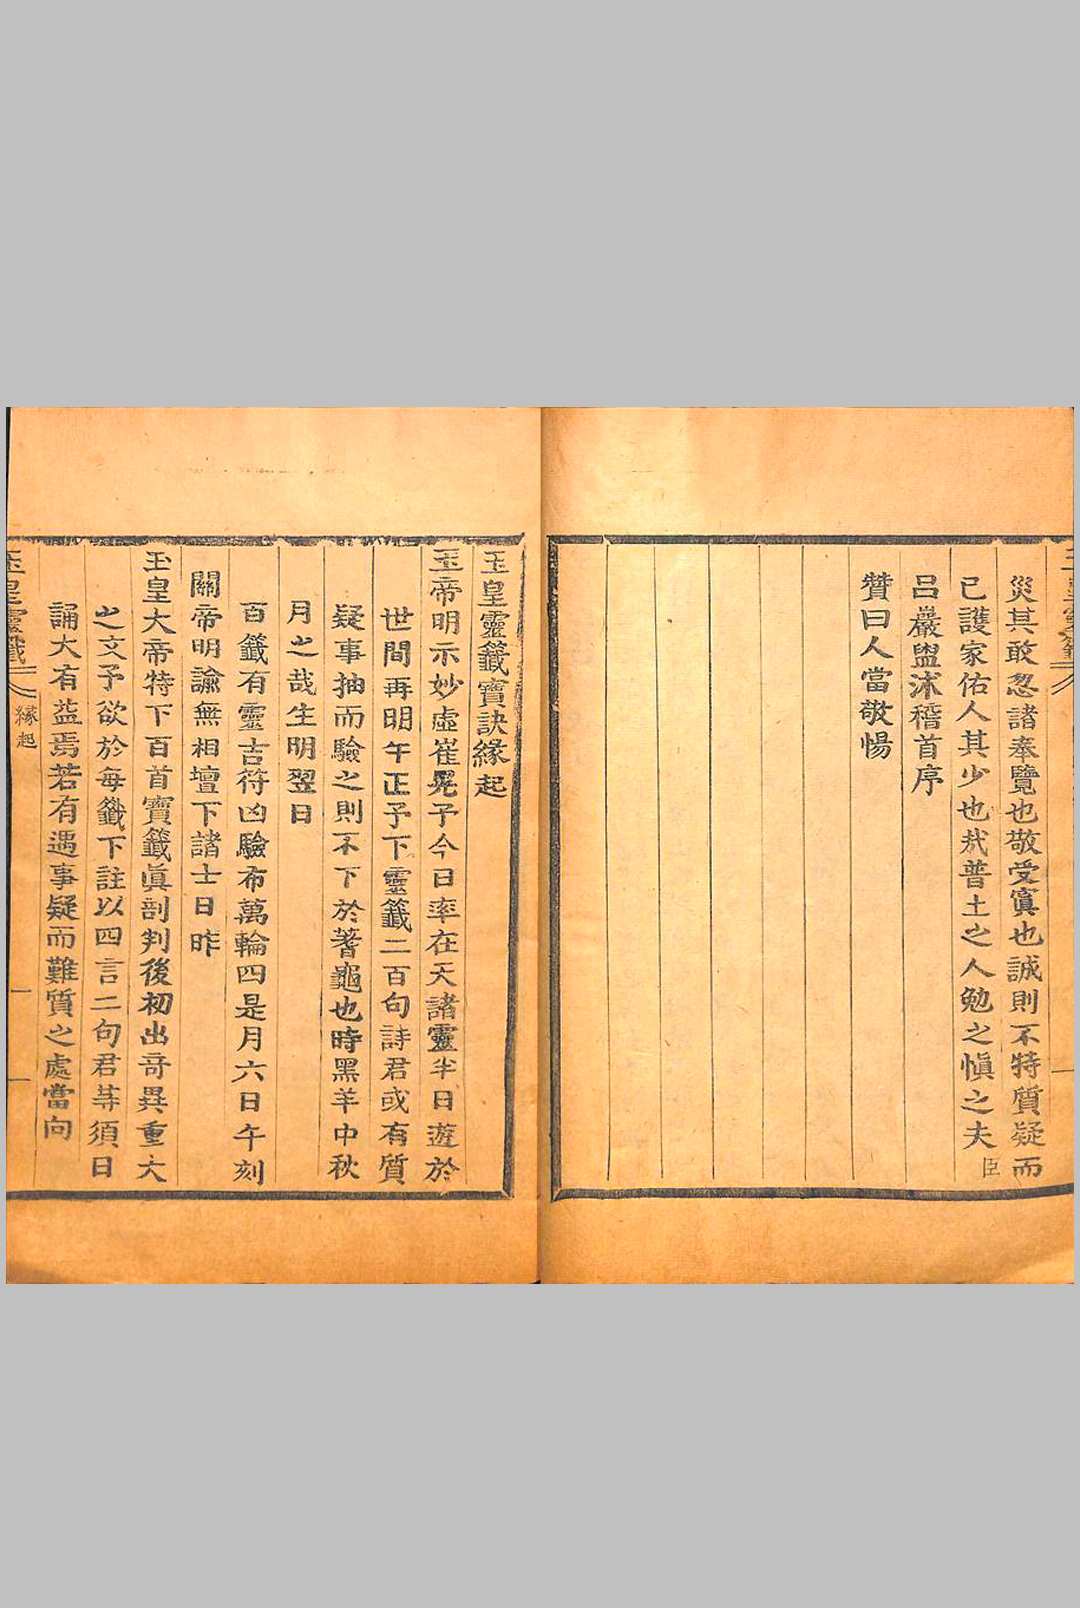 災其敢忽諸奉覽也敬受寘也誠則不特質疑而
已護家佑人其少也哉普土之人勉之愼之夫臣
呂巖盥沐稽首序
贊曰人當敬惕
玉皇靈籤寶訣緣起
玉帝明示妙虛崔晃予今日率在天諸靈半日遊於
世間再明午正予下靈籤二百句詩君或有質
疑事抽而驗之則不下於蓍龜也時黑羊中秋
月之哉生明翌日
百籤有靈吉符凶驗布萬輪四是月六日午刻
關帝明諭無相壇下諸士日昨
玉皇大帝特下百首寶籤眞剖判後初出奇異重大
之文予欲於每籤下註以四言二句君等須日
誦大有益焉若有遇事疑而難質之處當向
玉皇靈籤
緣起
一